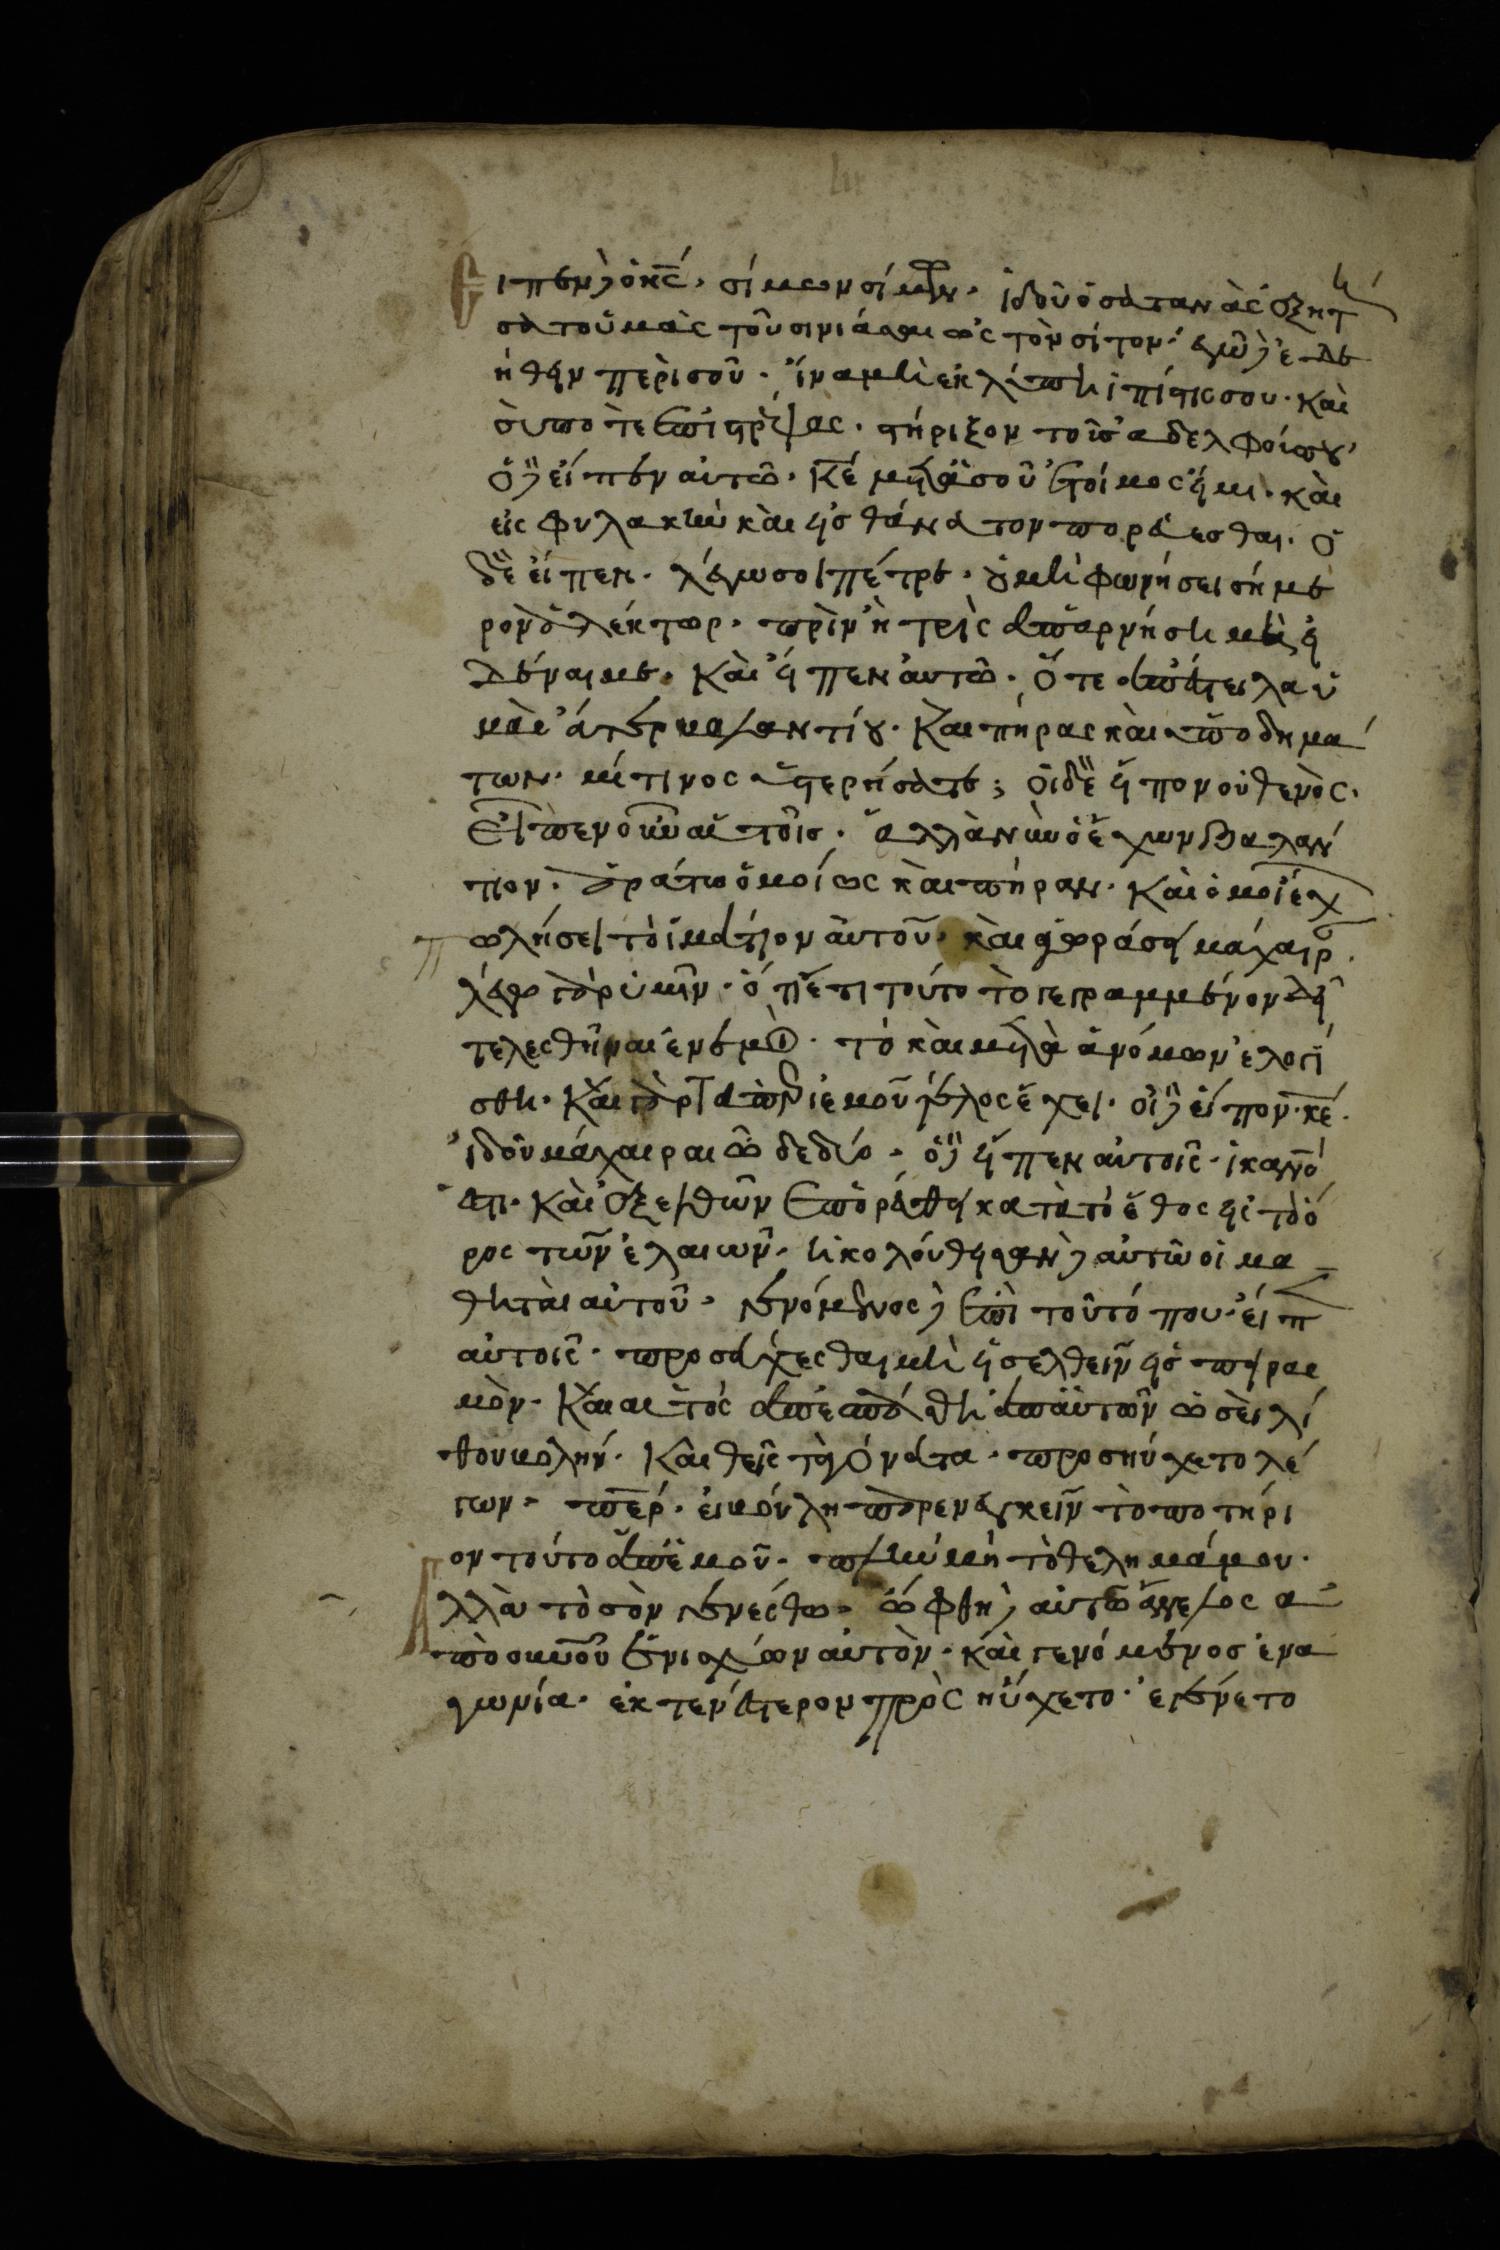 Εἶπεν δὲ ὁ κ̅ς̅. σίμων σίμων. ἰδοὺ ὁ σατανὰς ἐξητή
σατο ὑμὰς τοῦ σινιάσαι ὡς τὸν σίτον. ἐγὼ δὲ ἐδε
ήθην περὶ σοῦ. ἵνα μὴ ἐκλίπη ἡ πίστις σου. καὶ
σύ ποτε ἐπιστρέψας. στήριξον τοῖς ἀδελφοίς σου.
ὁ δὲ εἶπεν αὐτῶ. κ̅ε̅ μετὰ σοῦ ἕτοιμος εἰμι. καὶ
εἰς φυλακὴν καὶ εἰς θάνατον πορεύεσθαι. ὁ
δὲ εἶπεν. λέγω σοι πέτρε. οὐ μὴ φωνήσει σήμε
ρον ἀλέκτωρ. πρὶν ἢ τρὶς ἀπαρνήση μὴ εἰ
δέναι με. καὶ εἶπεν αὐτῶ. ὅτε ἀπέστειλα ὑ
μὰς ἄτερ βαλαντίου. καὶ πήρας καὶ ὑποδημά
των. μή τινος ὑστερήσατε; οἱ δὲ εἶπον οὐθενὸς.
Εἶπεν οὖν αὐτοῖς. ἀλλὰ νῦν ὁ ἔχων βαλάν
τιον. ἀράτω ὁμοίως καὶ πήραν. καὶ ὁ μὴ ἔχ
πωλήσει τὸ ἱμάτιον αὐτοῦ. καὶ ἀγοράσει μάχαιρ
λέγω γὰρ ὑμῖν. ὅτι ἔτι τούτο τὸ γεγραμμένον δεῖ
τελεσθῆναι ἐν ἐμοὶ. τό καὶ μετὰ ἀνόμων ἐλογί
σθη. καὶ γὰρ τὰ περὶ ἐμοῦ τέλος ἔχει. οἱ δὲ εἶπον. κ̅ε̅.
ἰδοῦ μάχαιραι ὧδε δύο. ὁ δὲ εἶπεν αὐτοῖς. ἱκανόν
ἐστι. καὶ ἐξελθὼν ἐπορεύθη κατὰ τὸ ἔθος εἰς τὸ ὄ
ρος τῶν ἐλαιων. ἠκολούθησαν δὲ αὐτῶ οἱ μα
θηταὶ αὐτοῦ. γενόμενος δὲ ἐπὶ τοῦ τόπου. εἶπ
αὐτοις. προσεύχεσθαι μὴ εἰσελθεῖν εἰς πειρασ
μὸν. καὶ αὐτὸς ἀπεσπάσθη ἀπ' αὐτῶν ὡσεὶ λί
θου βολήν. καὶ θεὶς τὰ γόνατα. προσηύχετο λέ
γων. π̅ε̅ρ̅. εἰ βούλη παρενεγκεῖν τὸ ποτήρι
ον τούτο ἀπ' ἐμοῦ. πλὴν μὴ τὸ θελημά μου.
Ἀλλὰ τὸ σὸν γενέσθω. ὤφθη δὲ αὐτῶ ἄγγελος ἀ
πὸ οὐνου ἐνισχύων αὐτὸν. καὶ γενόμενος ἐν α
γωνία. ἐκτενέστερον προσηύχετο. ἐγένετο